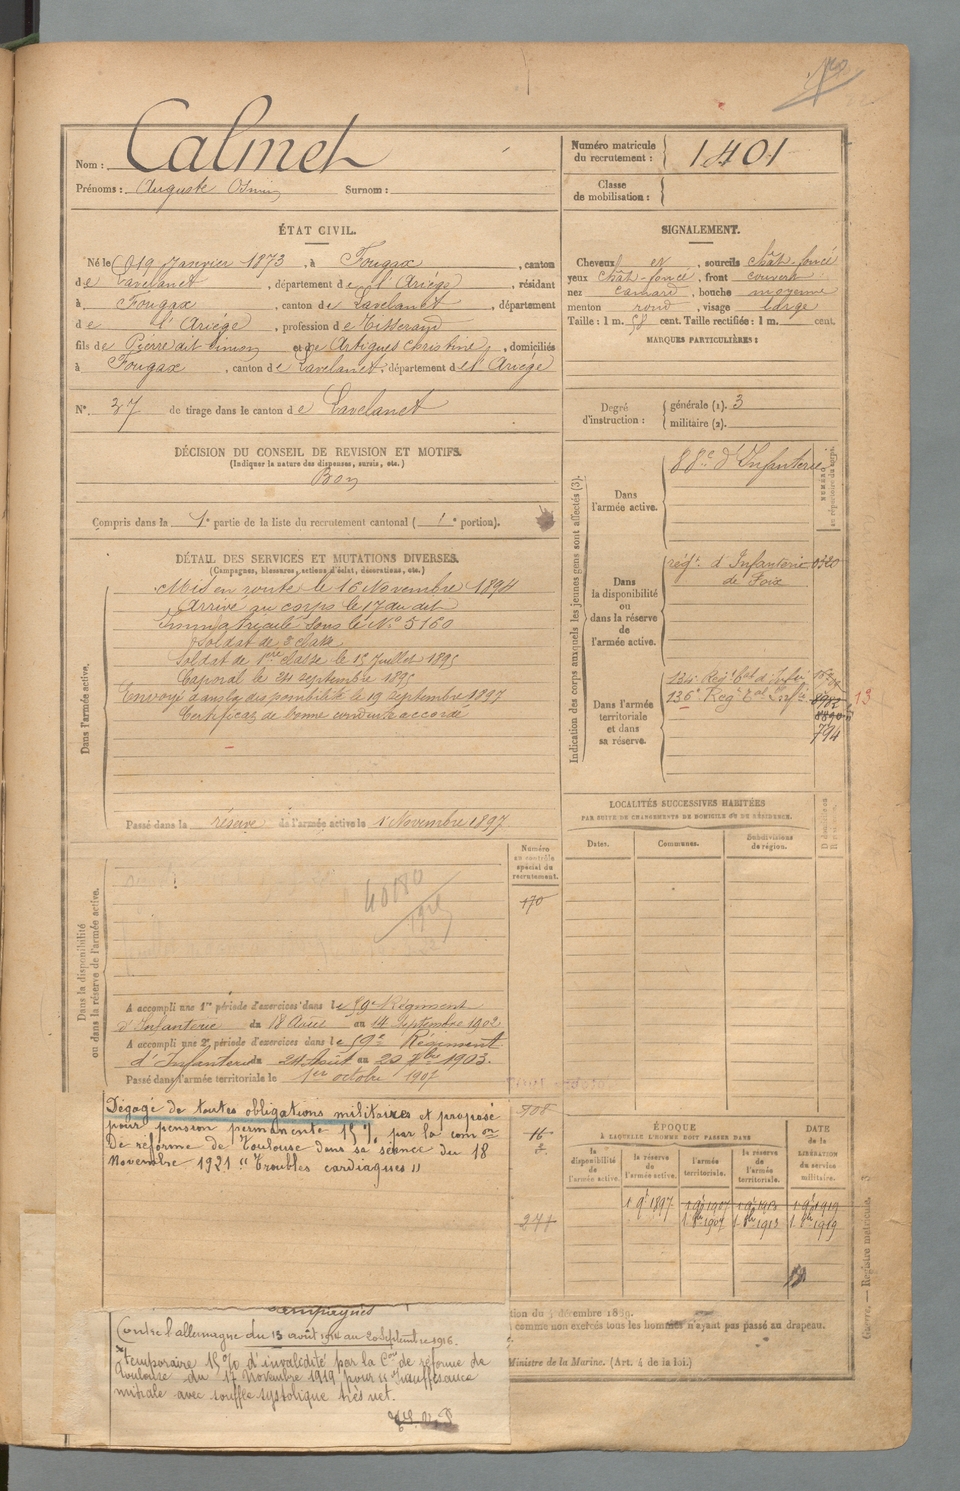 Nom : Calmet
Prénoms : Auguste Osmin Surnom :
Numéro matricule du recrutement : 1401
Classe de mobilisation :
ÉTAT CIVIL.
Né le 19 Janvier 1873, à Fougax, canton
de Lavelanet, département de l'Ariége, résidant
à Fougax, canton de Lavelanet, département
de l'Ariége, profession de Tisserand
fils de Pierre dit Simon et de Artigues Christine, domiciliés
à Fougax, canton de Lavelanet, département de l'Ariége
N° 37 de tirage dans le canton de Lavelanet
SIGNALEMENT.
Cheveux et, sourcils chât-foncé
yeux chât-foncé, front couvert
nez camard, bouche moyenne
menton rond, visage large
Taille : 1 m. 58 cent. Taille rectifiée : 1 m. cent.
MARQUES PARTICULIÈRES :
Degré d'instruction : générale (1). 3
militaire (2).
DÉCISION DU CONSEIL DE REVISION ET MOTIFS.
(Indiquer la nature des dispenses, sursis, etc.)
Bon
Compris dans la 1e partie de la liste du recrutement cantonal (1e portion).
DÉTAIL DES SERVICES ET MUTATIONS DIVERSES.
(Campagnes, blessures, actions d'éclat, décorations, etc.)
Dans l'armée active.
Mis en route le 16 Novembre 1894
Arrivé au corps le 17 du dit
Immatriculé sous le N° 5160
Soldat de 2e classe
Soldat de 1re classe le 15 Juillet 1895
Caporal le 24 septembre 1895
Envoyé dans la disponibilité le 19 septembre 1897
Certificat de bonne conduite accordé
Passé dans la réserve de l'armée active le 1 Novembre 1897
Indication des corps auxquels les jeunes gens sont affectés (3).
NUMÉRO au répertoire du corps.
Dans l'armée active.
88e d'Infanterie
Dans la disponibilité ou dans la réserve de l'armée active.
régt d'Infanterie 0320
de Foix
Dans l'armée territoriale et dans sa réserve.
134e Régt tal d'Infie
136e Régt tal Infie
13
794
LOCALITÉS SUCCESSIVES HABITÉES
PAR SUITE DE CHANGEMENTS DE DOMICILE OU DE RÉSIDENCE.
Dates. Communes. Subdivisions de région.
Dans la disponibilité ou dans la réserve de l'armée active.
Numéro au contrôle spécial du recrutement.
170
A accompli une 1re période d'exercices dans le 59e Régiment
d'Infanterie du 18 Août au 14 Septembre 1902
A accompli une 2e période d'exercices dans le 59e Régiment
d'Infanterie du 24 Août au 20 7bre 1903.
Passé dans l'armée territoriale le 1er octobre 1907
Dégagé de toutes obligations militaires et proposé
pour pension permanente 15% par la comon
De réforme de Toulouse dans sa séance du 18
Novembre 1921 "Troubles cardiaques"
908
16
2
271
ÉPOQUE
À LAQUELLE L'HOMME DOIT PASSER DANS
la disponibilité de l'armée active.
la réserve de l'armée active.
l'armée territoriale.
la réserve de l'armée territoriale.
DATE de la LIBÉRATION du service militaire.
1 9bre 1897 1 9bre 1907 1 9bre 1913 1 9bre 1919
1 8bre 1907 1 8bre 1913 1 8bre 1919
tion du décembre 1889.
comme non exercés tous les hommes n'ayant pas passé au drapeau.
Ministre de la Marine. (Art. 4 de la loi.)
Guerre. — Registre matricule. 3
Contre l'allemagne du 13 août 1914 au 20 septembre 1916.
temporaire 15% d'invalidité par la Con de réforme de
Toulouse du 17 Novembre 1919 pour
mitrale avec souffle systolique très net.